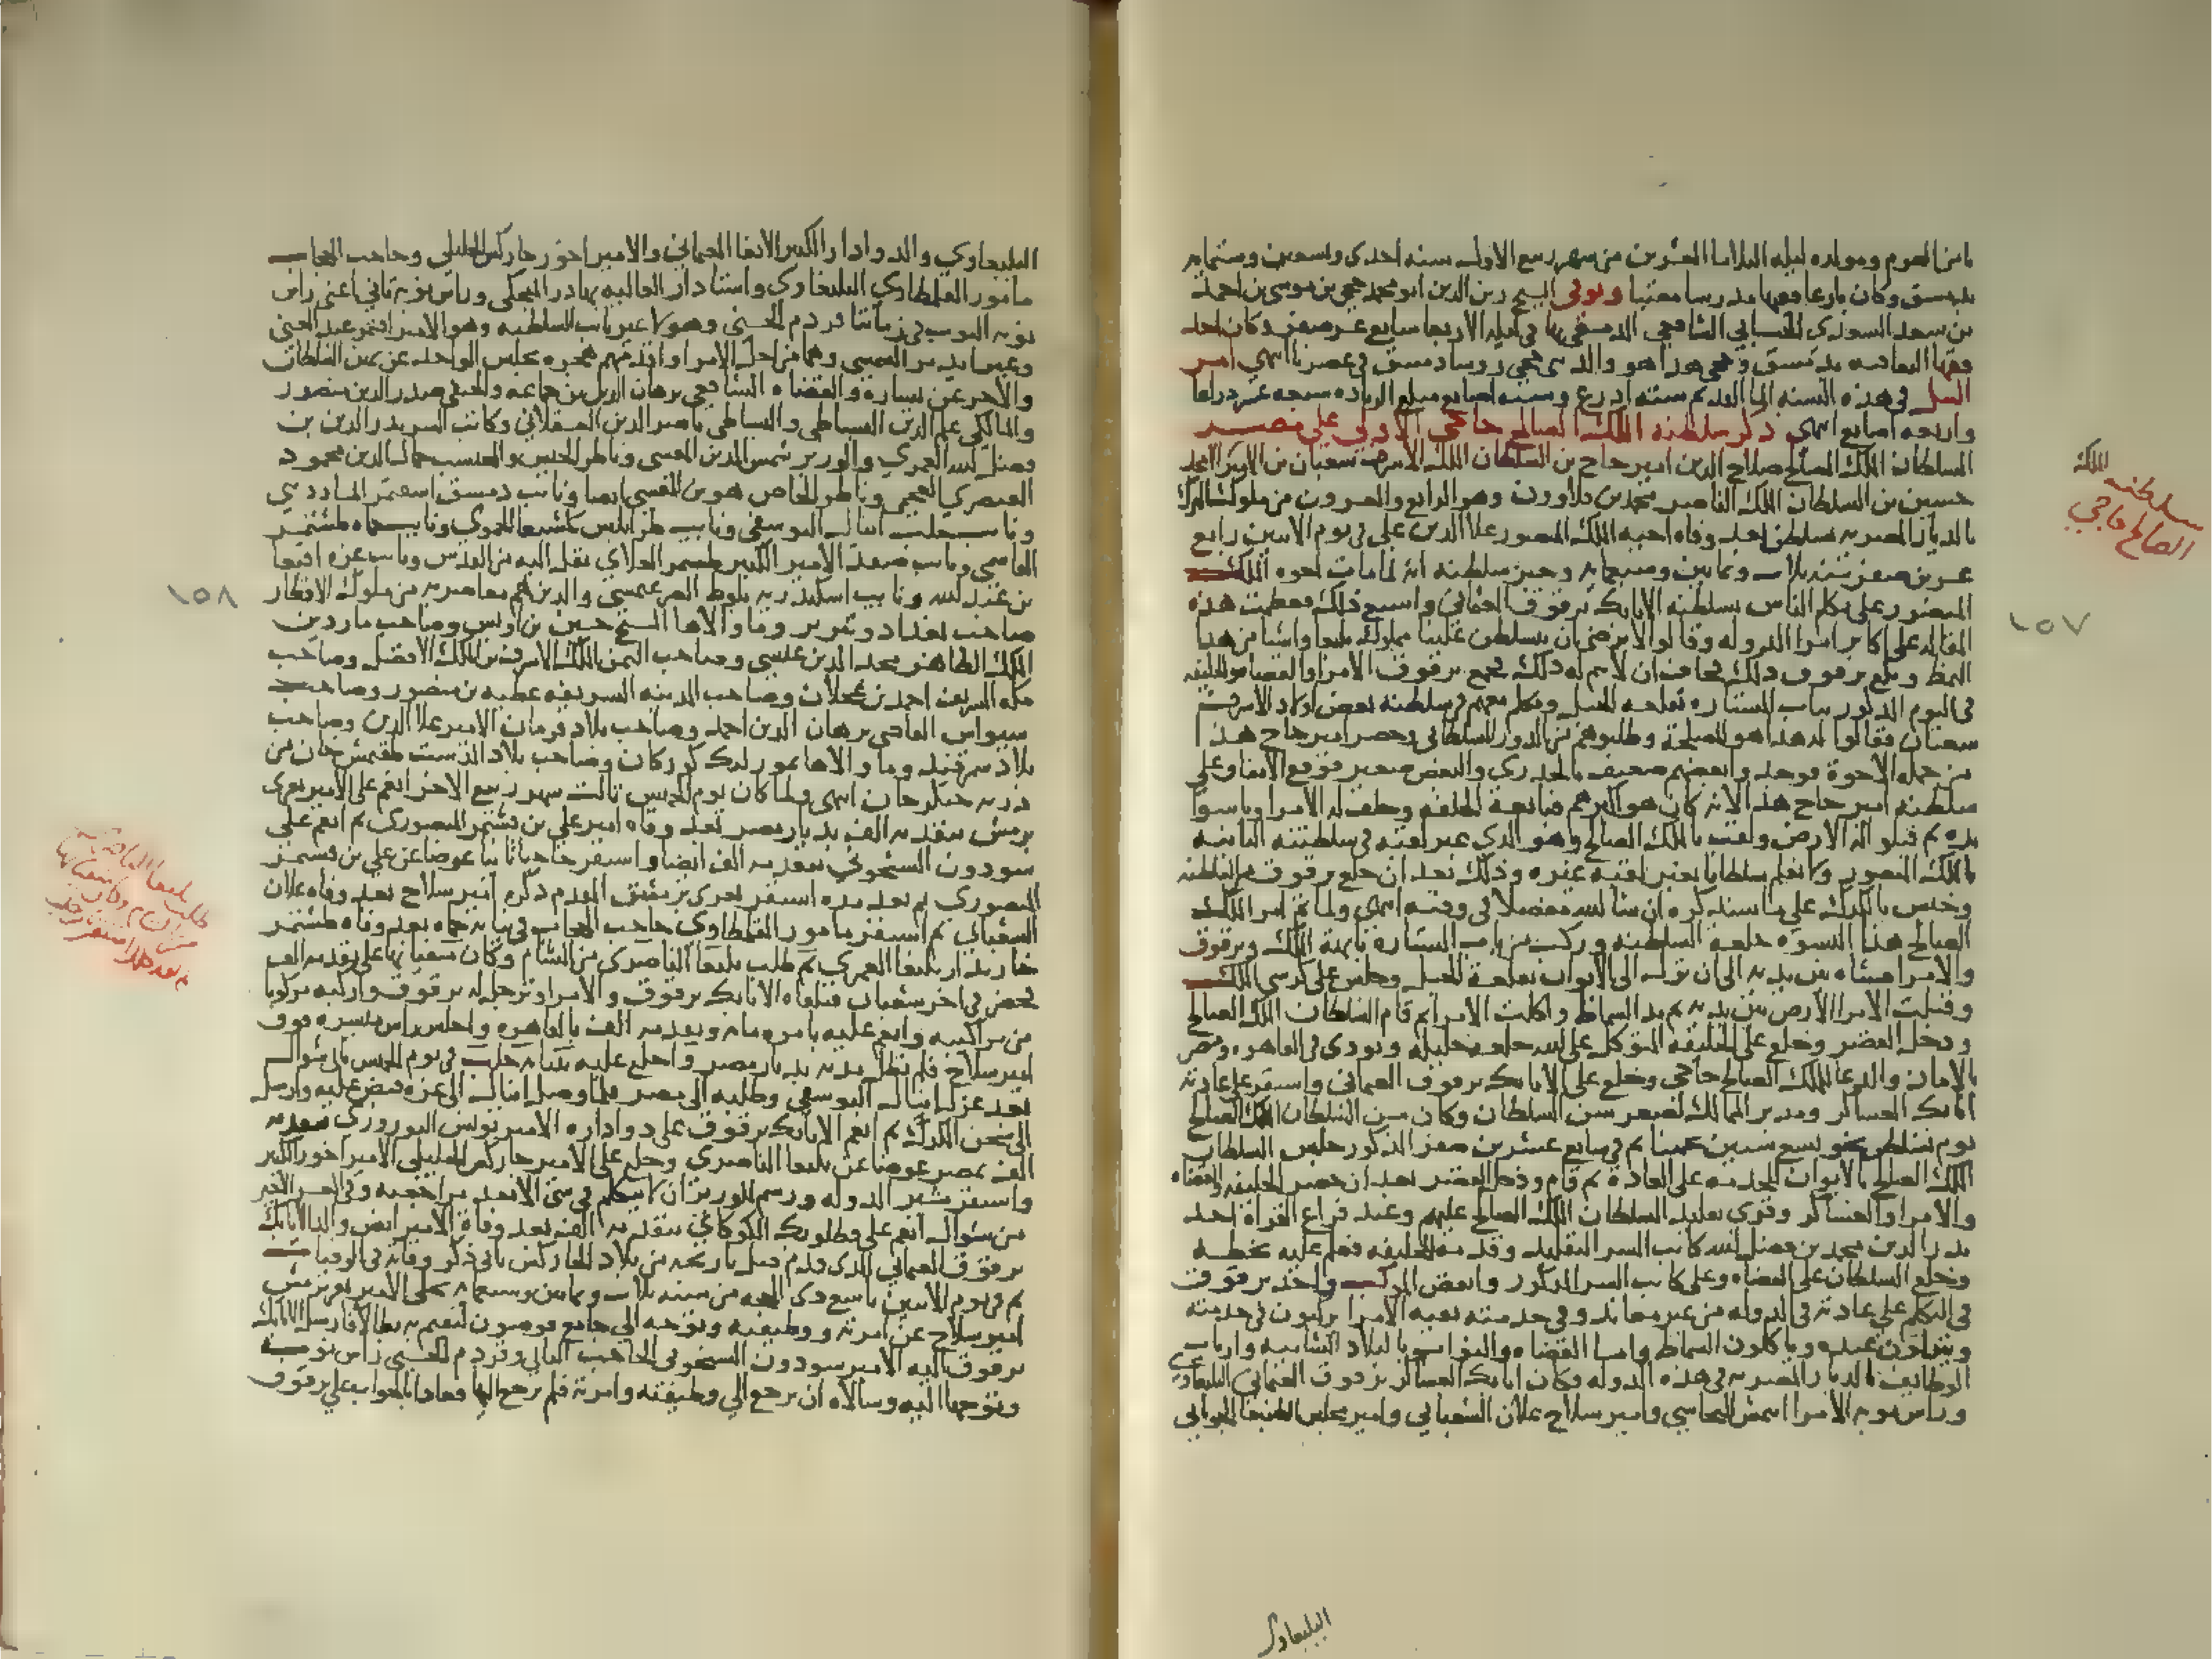 ثامن المحرم ومولده ليله الثلاثا العشرين من شهر ربيع الاول سنه احدى وتسعين وستمايه
بدمشق وكان بارعا فقيها مدرسا مفتيا وتوفي الشيخ زين الدين ابو محمد حجي بن موسى بن احمد
بن سعد السعدي الحسباني الشافعي الدمشقي بها في ليله الاربعا سابع عشر صفر وكان احد
فقها الشافعيه بدمشق وحجي هذا هو والد بني حجي روسا دمشق في عصرنا انتهى امر
النيل في هذه السنه الما القديم سته ادرع وسته اصابع مبلغ الزياده سبعه عشر دراعا
واربعه اصابع انتهى ذكر سلطنه الملك الصالح حاجي الاولى على مصر
السلطان الملك الصالح صلاح الدين امير حاج بن السلطان الملك الاشرف شعبان بن الامير الامجد
حسين بن السلطان الملك الناصر محمد بن قلاوون وهو الرابع والعشرون من ملوك الترك
بالديار المصريه تسلطن بعد وفاه اخيه الملك المنصور علا الدين علي في يوم الاثنين رابع
عشرين صفر سنه ثلاث وثمانين وسبعمايه وخبر سلطنته انه لما مات اخوه الملك
المنصور علي تكلم الناس بسلطنه الاتابك برقوق العثماني واشيع ذلك فعظمت هذه
المقاله على اكابر امرا الدوله وقالوا لا نرضى ان يتسلطن علينا مملوك يلبغا واشيا من هذا
النمط وبلغ برقوق ذلك فخاف ان لا يتم له ذلك فجمع برقوق الامرا والقضاه والخليفه
في اليوم المذكور بباب الستاره بقلعه الجبل وتكلم معهم في سلطنه بعض اولاد الاشرف
شعبان فقالوا له هذا هو المصلحه وطلبوهم من الدور السلطاني وحضر امير حاج هذا
من جمله الاخوة فوجد وابعضهم ضعيف بالجدري والبعض صغير فوقع الاتفاق على
سلطنه امير حاج هذا لانه كان هو اكبرهم فبايعه الخليفه وحلف له الامرا وباسوا
يده ثم قبلوا له الارض ولقب بالملك الصالح وهو الذي غير لقبه في سلطنته الثانيه
بالملك المنصور ولا نعلم سلطانا تغير لقبه غيره وذلك بعد ان خلع برقوق من السلطنه
وحبس بالكرك على ما سنذكره ان شا الله مفصلا في وقته انتهى ولما تم امر الملك
الصالح هذا البسوه خلعه السلطنه وركب من باب الستاره بابهة الملك وبرقوق
والامرا مشاه بين يديه الى ان نزل الى الايوان بقلعة الجبل وجلس على كرسي الملك
وقبلت الامرا الارض بين يديه ثم مد السماط واكلت الامرا ثم قام السلطان الملك الصالح
ودخل القصر وخلع على الخليفه المتوكل على الله خلعه جليله ونودي في القاهره ومصر
بالامان والدعا للملك الصالح حاجي وخلع على الاتابك برقوق العثماني واستقر على عادته
اتابك العساكر ومدبر الممالك لصغر سن السلطان وكان سن السلطان الملك الصالح
يوم تسلطن نحو تسع سنين تخمينا ثم في سابع عشرين صفر المذكور جلس السلطان
الملك الصالح بالايوان للخدمه على العادة ثم قام ودخل القصر بعد ان حضر الخليفه والقضاه
والامرا والعساكر وقري تقليد السلطان الملك الصالح عليهم وعند فراغ القراه اخذ
بدر الدين محمد بن فضل الله كاتب السر التقليد وقدمه للخليفه فعلم عليه بخطه
وخلع السلطان على القضاه وعلى كاتب السر المذكور وانفض الموكب واخذ برقوق
في التكلم على عادته في الدوله من غير معاند وفي خدمته بقيه الامرا يركبون في خدمته
وينزلون عنده وياكلون السماط واما القضاه والنواب بالبلاد الشاميه وارباب
الوظايف بالديار المصريه في هذه الدوله فكان اتابك العساكر برقوق العثماني اليلبغاوي
وراس نوبه الامرا ايتمش البجاسي وامير سلاح علان الشعباني وامير مجلس الطنبغا الجوباني
اليلبغاوي
سلطنه الملك
الصالح حاجي
١٥٧
اليلبغاوي والدوادار الكبير الابغا العثماني والامير اخور جاركس الخليلي وحاجب الحجاب
مامور القلمطاوي اليلبغاوي واستادار العاليه بهادر المنجكي وراس نوبه ثاني اعني راس
نوبه النوب في زماننا قردم الحسني وهولا غير نايب السلطنه وهو الامير اقتمر عبد الغني
وغير ايدمر الشمسي وهما من اجل الامرا واقدمهم هجره يجلس الواحد عن يمين السلطان
والاخر عن يساره والقضاه الشافعي برهان الدين بن جماعه والحنفي صدر الدين منصور
والمالكي علم الدين البساطي والحنبلي ناصر الدين العسقلاني وكاتب السر بدر الدين بن
فضل الله العمري والوزير شمس الدين المقسي وناظر الجيش والمحتسب جمال الدين محمود
القيصري العجمي وناظر الخاص هو بن المقسي ايضا ونايب دمشق اشقتمر المارديني
ونايب حلب اينال اليوسفي ونايب طرابلس كمشبغا الحموي ونايب حماه طشتمر
القاسمي ونايب صفد الامير الكبير طشتمر العلاي نقل اليه من القدس ونايب غزه اقبغا
بن عبد الله ونايب اسكندريه بلوط الصرغتمشي والذين هم معاصريه من ملوك الاقطار
صاحب بغداد وتبريز وما والاها الشيخ حسين بن اويس وصاحب ماردين
الملك الظاهر مجد الدين عيسى وصاحب اليمن الملك الاشرف بن الملك الافضل وصاحب
مكه الشريف احمد بن عجلان وصاحب المدينه الشريفه عطيه بن منصور وصاحب
سيواس القاضي برهان الدين احمد وصاحب بلاد قرمان الامير علا الدين وصاحب
بلاد سمرقند وما والاها تمورلنك كوركان وصاحب بلاد الدشت طقتمش خان من
ذريه جنكزخان انتهى ولما كان يوم الخميس ثالث شهر ربيع الاخر انعم على الامير تغري
برمش بتقدمه الف بديار مصر بعد وفاه امير علي بن قشتمر المنصوري ثم انعم على
سودون الشيخوني بتقدمه الف ايضا واستقر حاجبا ثانيا عوضا عن علي بن قشتمر
المنصوري ثم بعد مده استقر تغري برمش المقدم ذكره امير سلاح بعد وفاه علان
الشعباني ثم استقر مامور القلمطاوي حاجب الحجاب في نيابه حماه بعد وفاه طشتمر
خازندار يلبغا العمري ثم طلب يلبغا الناصري من الشام وكان منفيا بها على تقدمه الف
فحضر في اخر شعبان فتلقاه الاتابك برقوق والامرا وترجل له برقوق واركبه مركوبا
من مراكبه وانعم عليه بامره مايه وتقدمه الف بالقاهره واجلس راس ميسره فوق
امير سلاح فلم تطل مدته بديار مصر واخلع عليه بنيابه حلب في يوم الخميس ثاني شوال
بعد عزل اينال اليوسفي وطلبه الى مصر فلما وصل اينال الى غزه قبض عليه وارسل
الى سجن الكرك ثم انعم الاتابك برقوق على دواداره الامير يونس النوروزي بتقدمه
الف بمصر عوضا عن يلبغا الناصري وخلع على الامير جاركس الخليلي الامير اخور الكبير
واستقر مشير الدوله ورسم للوزير ان لا يتكلم في شي الا بعد مراجعته وفي العشر الاخير
من شوال انعم على قطلوبك الكوكاي بتقدمه الف بعد وفاة الامير انص والد الاتابك
برقوق العثماني الذي قدم قبل تاريخه من بلاد الجاركس ياتي ذكر وفاته في الوفيات
ثم في يوم الاثنين تاسع ذي الحجه من سنه ثلاث وثمانين وسبعمايه تخلى الامير تغري برمش
امير سلاح عن امرته ووظيفته وتوجه الى جامع قوصون ليقيم به بطالا فارسل الاتابك
برقوق اليه الامير سودون الشيخوني الحاجب الثاني وقردم الحسني راس نوبه
وتوجها اليه وسالاه ان يرجع الى وظيفته وامرته فلم يرجع لهما فعادا بالجواب على برقوق
١٥٨
طلب يلبغا الناصري
من الشام وكان منفيا بها
ثم بعد مده استقر في حلب